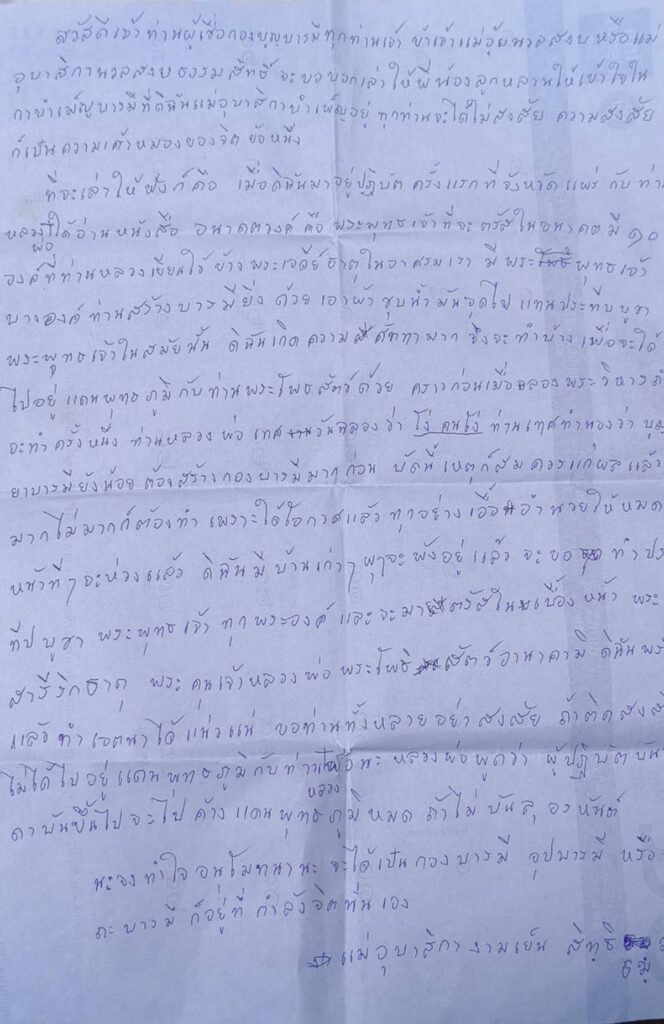 สวัสดีเจ้าท่านผู้เชื่อกองบุญบารมีทุกท่านเจ้า ข้าเจ้าแม่อุ้ยนวลสงบหรือแม่
อุบาสิกานวลสงบธรรมสิทธิ์ จะขอบอกเล่าให้พี่น้องลูกหลานให้เข้าใจใน
กาบำเพ็ญบารมีที่ดิฉันแม่อุบาสิกาบำเพ็ญอยู่ ทุกท่านจะได้ไม่สงสัย ความสงสัย
ก็เป็นความเศร้าหมองของจิต ข้อหนึ่ง
ที่จะเล่าให้ฟังก็คือ เมื่อดิฉันมาอยู่ปฏิบัต ครั้งแรกที่จังหวัดแพร่ กับท่าน
หลวงพ่อได้อ่านหนังสือ อนาคตวงค์ คือ พระพุทธเจ้าที่จะตรัสในอนาคตมี ๑๐
องค์ที่ท่านหลวงเขียนใว้ ข้างพระเจดีย์ธาตุในอาศรมเรา มีพระ พุทธเจ้า
บางองค์ ท่านสร้างบารมียิ่ง ด้วยเอาผ้าชุบน้ำมันจุดไฟ แทนประทีบบูชา
พระพุทธเจ้าในสมัยนั้น ดิฉันเกิดความ ศัทาามาก จึงจะทำบ้าง เพื่อจะได้
ไปอยู่ แดนพุทธภูมิกับท่านพระโพธสัตว์ด้วย คราวก่อนเมื่อฉลองพระวิหาร
จะทำครั้งหนึ่ง ท่านหลวงพ่อเทศ วันฉลองว่า โง่ คนโง่ ท่านเทศทำนองว่า
ยาบารมียังน้อย ต้องสร้างกองบารมีมากก่อน บัดนี้เหตุก็สมควรแก่ผลแล้ว
มากไม่มากก็ต้องทำ เพราะได้โอกาศแล้ว ทุกอย่างเอื้ออำนวยให้หมด
หน้าที่ๆจะห่วงแล้ว ดิฉันมีบ้านเก่าๆ ผุๆจะพังอยู่แล้ว จะขอ ทำประ
ทีปบูชา พระพุทธเจ้า ทุกพระองค์ และจะมา ตรัสใน เบื้องหน้า พระ
สารีริกธาตุ พระคุนเจ้าหลวงพ่อ พระโพธิ สัตว์อานาคามี ดิฉัน
แล้วทำเจตนาได้ แน่วแน่ ขอท่านทั้งหลายอย่าสงสัย ถ้าติดสงสัย
ไม่ได้ไปอยู่แดนพุทธภูมิกับท่าน นะ หลวงพ่อพูดว่า ผู้ปฏิบัตบัน
หลวง
ดาบันขึ้นไปจะไปค้างแดนพุทธภูมิหมด ถ้าไม่บันลุอรหันต์
นะจงทำใจอนุโมทนานะ จะได้เป็นกองบารมี อุปบารมี หรือ
ถะบารมี ก็อยู่ที่กำลังจิตนั่นเอง
แม่อุบาสิกางามเย็น สิทธิ